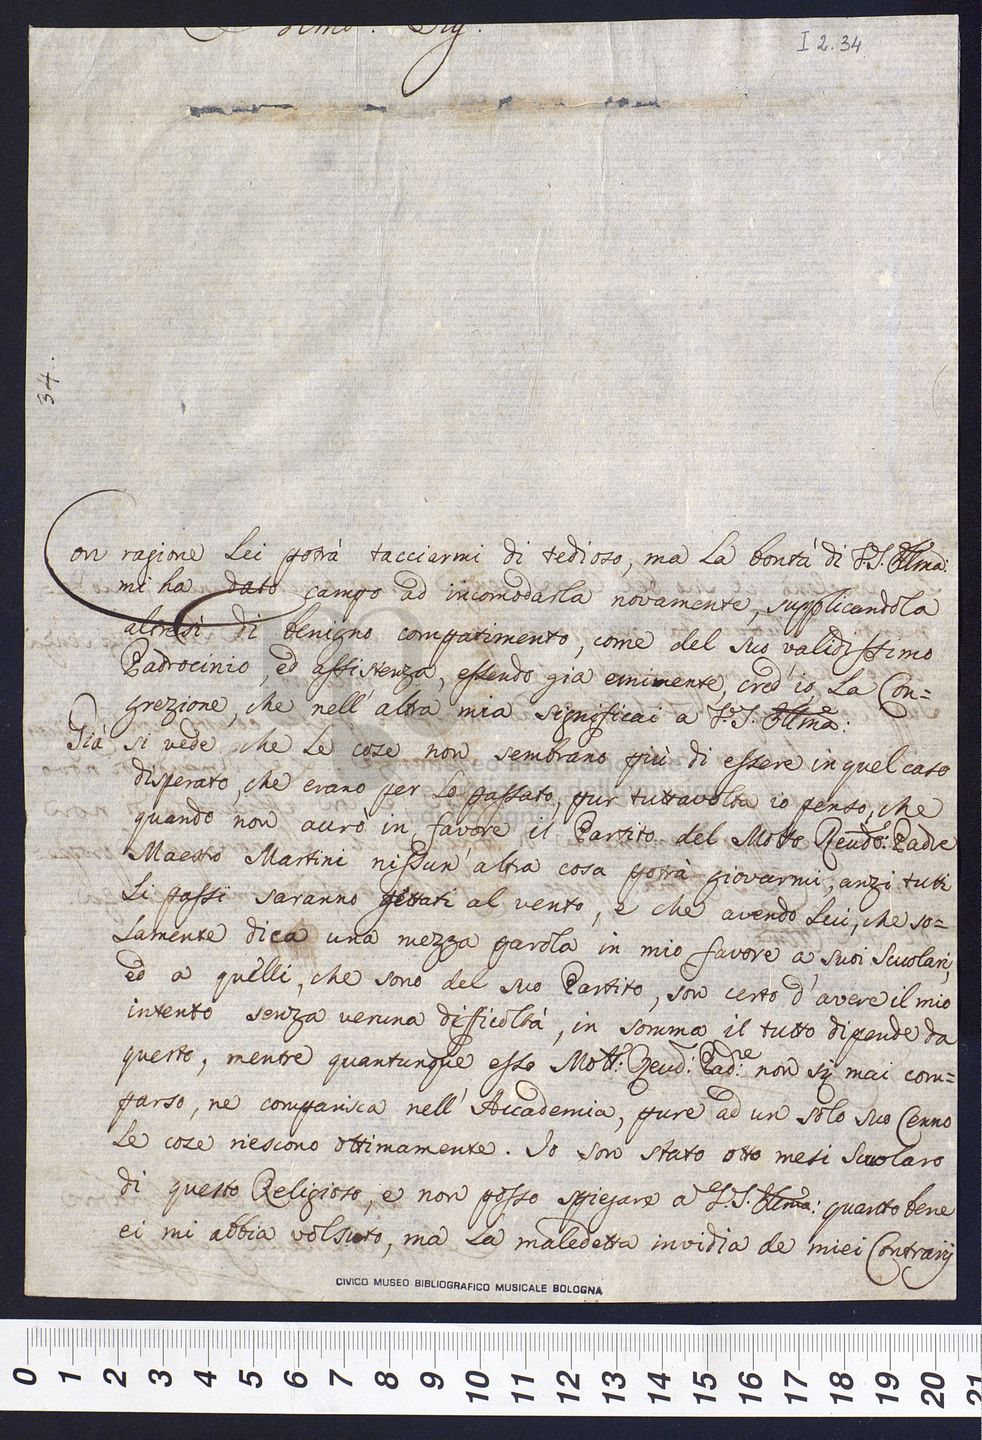 I 2.34
34.
Con ragione Lei potrà tacciarmi di tedioso, ma La bontà di V.S. Illma:
mi ha dato campo ad incomodarla novamente, supplicandola
altresì di benigno compatimento, come del suo validissimo
Padrocinio, ed assistenza, essendo già eminente, cred' io, La Con=
grezione, che nell' altra mia significai a V.S. Illma:
Già si vede che Le cose non sembrano più di essere in quel caso
disperato, che erano per Lo passato, pur tuttavolta io penso, che
quando non aurò in favore il Partito del Molto Reudo: Padre
Maestro Martini nissun' altra cosa potrà giovarmi, anzi tutti
Li passi saranno gittati al vento, e che avendo Lui, che so=
Lamente dica una mezza parola in mio favore a suoi Scuolari,
ed a quelli, che sono del suo Partito, son certo d' avere il mio
intento senza veruna difficoltà, in somma il tutto dipende da
questo, mentre quantunque esso Molt: Reud: Padre non sij mai com=
parso, ne comparisca nell' Accademia, pure ad un solo suo Cenno
Le cose riescono ottimamente. Io son stato otto mesi Scuolaro
di questo Religioso, e non posso spiegare a V.S. Illma: quanto bene
ei mi abbia volsuto, ma La maledetta invidia de miei Contrarij
CIVICO MUSEO BIBLIOGRAFICO MUSICALE BOLOGNA
0 1 2 3 4 5 6 7 8 9 10 11 12 13 14 15 16 17 18 19 20 21